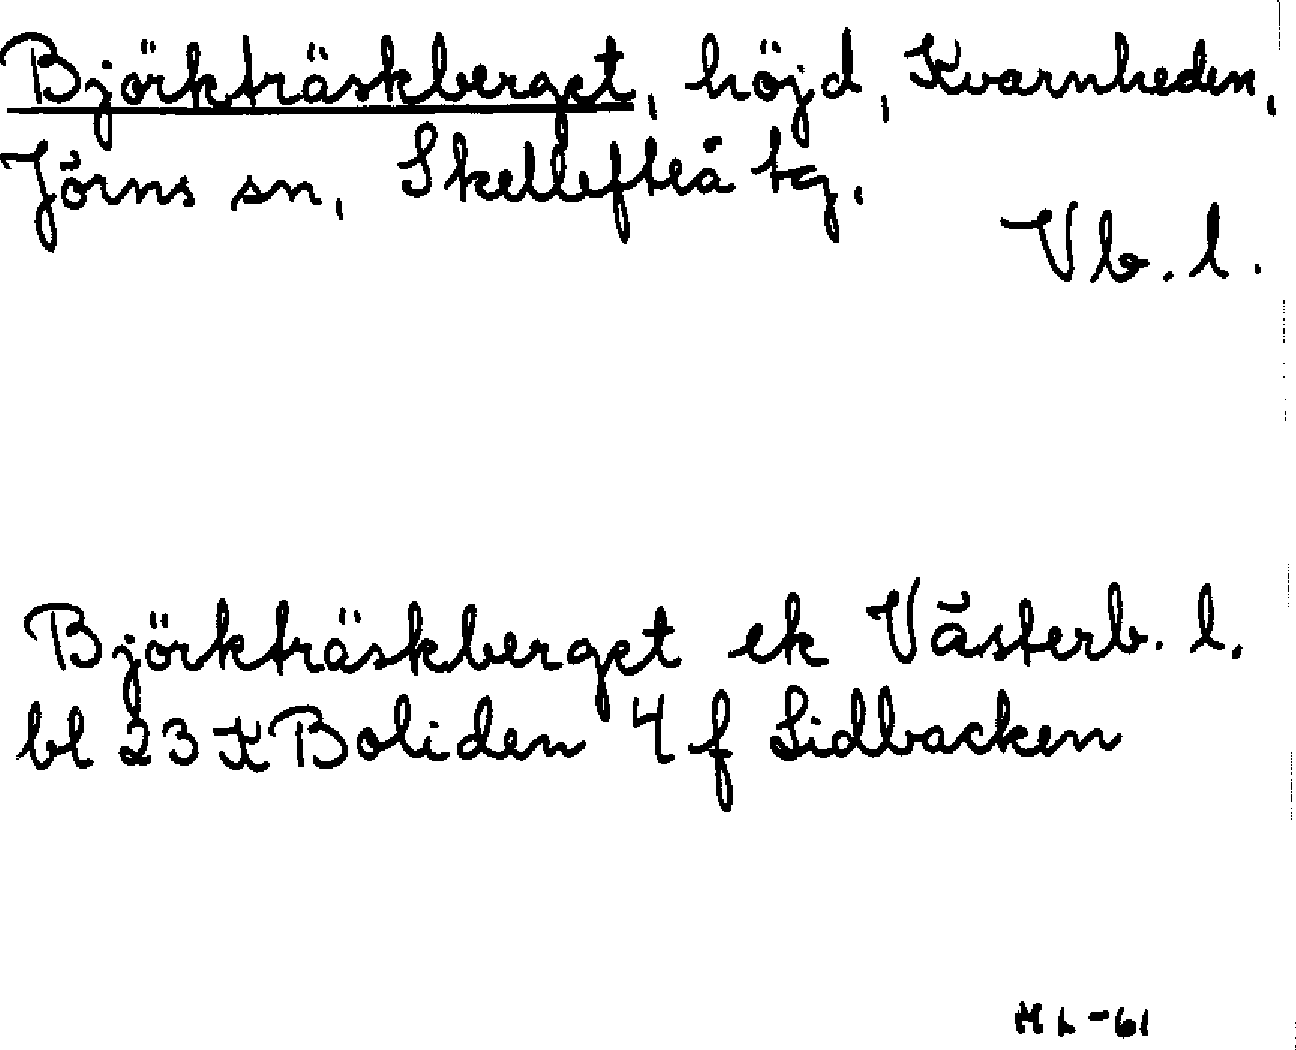 Björkträskberget, höjd, Kvarnheden,
Jörns sn, Skellefteå tg.
Vb. l.
Björkträskberget ek Västerb. l.
bl 23 K Boliden 4 f Lidbacken
ML -61